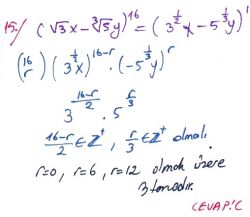 15./ (√3x - ∛5y)^16 = (3^(1/2)x - 5^(1/3)y)^1
(16 r) (3^(1/2)x)^(16-r) · (-5^(1/3)y)^r
3^((16-r)/2) · 5^(r/3)
(16-r)/2 ∈ Z⁺, r/3 ∈ Z⁺ olmalı.
r=0, r=6, r=12 olmak üzere
3 tanedir.
CEVAP: C